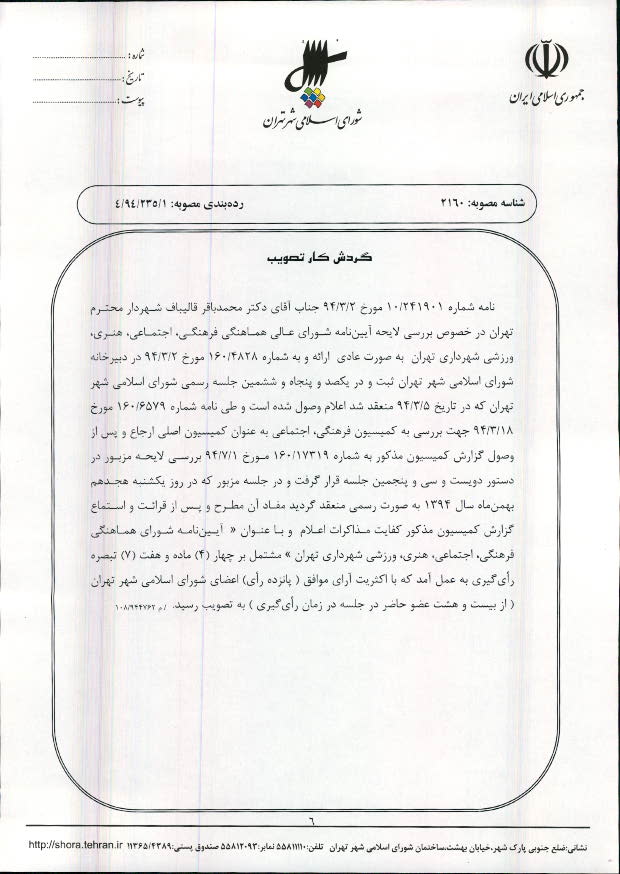 جمهوری اسلامی ایران
شورای اسلامی شهر تهران
شماره :
تاریخ :
پیوست :
شناسه مصوبه: ۲۱۶۰
رده‌بندی مصوبه: ۴/۹۴/۲۳۵/۱
گردش کار تصویب
نامه شماره ۱۰/۲۴۱۹۰۱ مورخ ۹۴/۳/۲ جناب آقای دکتر محمدباقر قالیباف شهردار محترم
تهران در خصوص بررسی لایحه آیین‌نامه شورای عالی هماهنگی فرهنگی، اجتماعی، هنری،
ورزشی شهرداری تهران به صورت عادی ارائه و به شماره ۱۶۰/۴۸۲۸ مورخ ۹۴/۳/۲ در دبیرخانه
شورای اسلامی شهر تهران ثبت و در یکصد و پنجاه و ششمین جلسه رسمی شورای اسلامی شهر
تهران که در تاریخ ۹۴/۳/۵ منعقد شد اعلام وصول شده است و طی نامه شماره ۱۶۰/۶۵۷۹ مورخ
۹۴/۳/۱۸ جهت بررسی به کمیسیون فرهنگی، اجتماعی به عنوان کمیسیون اصلی ارجاع و پس از
وصول گزارش کمیسیون مذکور به شماره ۱۶۰/۱۷۳۱۹ مورخ ۹۴/۷/۱ بررسی لایحه مزبور در
دستور دویست و سی و پنجمین جلسه قرار گرفت و در جلسه مزبور که در روز یکشنبه هجدهم
بهمن‌ماه سال ۱۳۹۴ به صورت رسمی منعقد گردید مفاد آن مطرح و پس از قرائت و استماع
گزارش کمیسیون مذکور کفایت مذاکرات اعلام و با عنوان « آیین‌نامه شورای هماهنگی
فرهنگی، اجتماعی، هنری، ورزشی شهرداری تهران » مشتمل بر چهار (۴) ماده و هفت (۷) تبصره
رأی‌گیری به عمل آمد که با اکثریت آرای موافق ( پانزده رأی) اعضای شورای اسلامی شهر تهران
( از بیست و هشت عضو حاضر در جلسه در زمان رأی‌گیری ) به تصویب رسید. /م ۱۰۸/۹۴۴۷۶۲
۶
نشانی:ضلع جنوبی پارک شهر،خیابان بهشت،ساختمان شورای اسلامی شهر تهران تلفن:۵۵۸۱۱۱۱۰ نمابر:۵۵۸۱۲۰۹۳ صندوق پستی:۱۱۳۶۵/۴۳۸۹ http://shora.tehran.ir